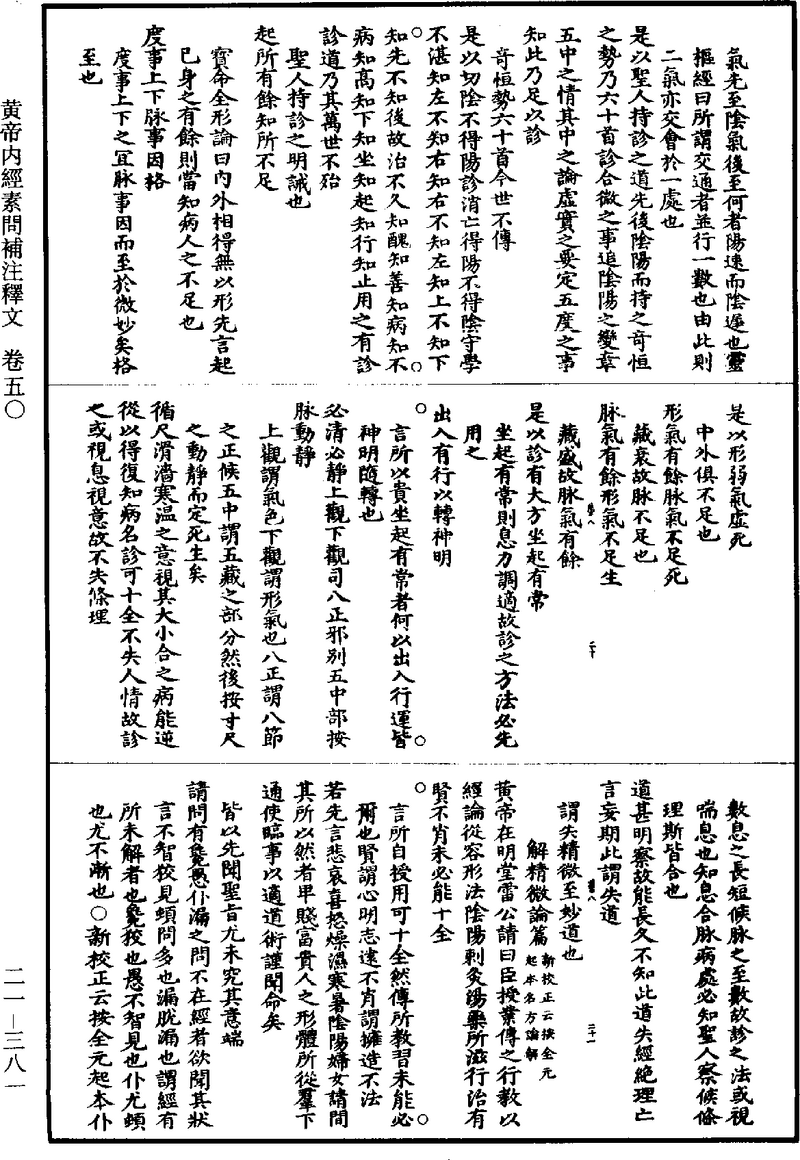 氣先至陰氣後至何者陽速而陰遲也靈
樞經曰所謂交通者並行一數也由此則
二氣亦交會於一處也
是以聖人持診之道先後陰陽而持之奇恒
之勢乃六十首診合微之事追陰陽之變章
五中之情其中之論虛實之要定五度之事
知此乃足以診
奇恒勢六十首今世不傳
是以切陰不得陽診消亡得陽不得陰守學
不湛知左不知右知右不知左知上不知下
知先不知後故治不久知醜知善知病知不
病知高知下知坐知起知行知止用之有診
診道乃其萬世不殆
聖人持診之明誡也
起所有餘知所不足
寶命全形論曰內外相得無以形先言起
已身之有餘則當知病人之不足也
度事上下脉事因格
度事上下之宜脉事因而至於微妙矣格
至也
是以形弱氣虛死
中外俱不足也
形氣有餘脉氣不足死
藏衰故脉不足也
脉氣有餘形氣不足生
藏盛故脉氣有餘
是以診有大方坐起有常
坐起有常則息力調適故診之方法必先
用之
出入有行以轉神明
言所以貴坐起有常者何以出入行運皆
神明隨轉也
必清必靜上觀下觀司八正邪別五中部按
脉動靜
上觀謂氣色下觀謂形氣也八正謂八節
之正候五中謂五藏之部分然後按寸尺
之動靜而定死生矣
循尺滑濇寒温之意視其大小合之病能逆
從以得復知病名診可十全不失人情故診
之或視息視意故不失條理
數息之長短候脉之至數故診之法或視
喘息也知息合脉病處必知聖人察候條
理斯皆合也
道甚明察故能長久不知此道失經絶理亡
言妄期此謂失道
謂失精微至妙道也
解精微論篇新校正云按全元起本名方論解
黃帝在明堂雷公請曰臣授業傳之行教以
經論從容形法陰陽刺灸湯藥所滋行治有
賢不肖未必能十全
言所自授用可十全然傳所教習未能必
爾也賢謂心明志遠不肖謂擁造不法
若先言悲哀喜怒燥濕寒暑陰陽婦女請問
其所以然者卑賤富貴人之形體所從羣下
通使臨事以適道術謹聞命矣
皆以先聞聖旨尤未究其意端
請問有毚愚仆漏之問不在經者欲聞其狀
言不智狡見頓問多也漏脫漏也謂經有
所未解者也毚狡也愚不智見也仆尤頓
也尤不漸也○新校正云按全元起本仆
黄帝内經素問補注釋文　卷五〇
二一—三八一